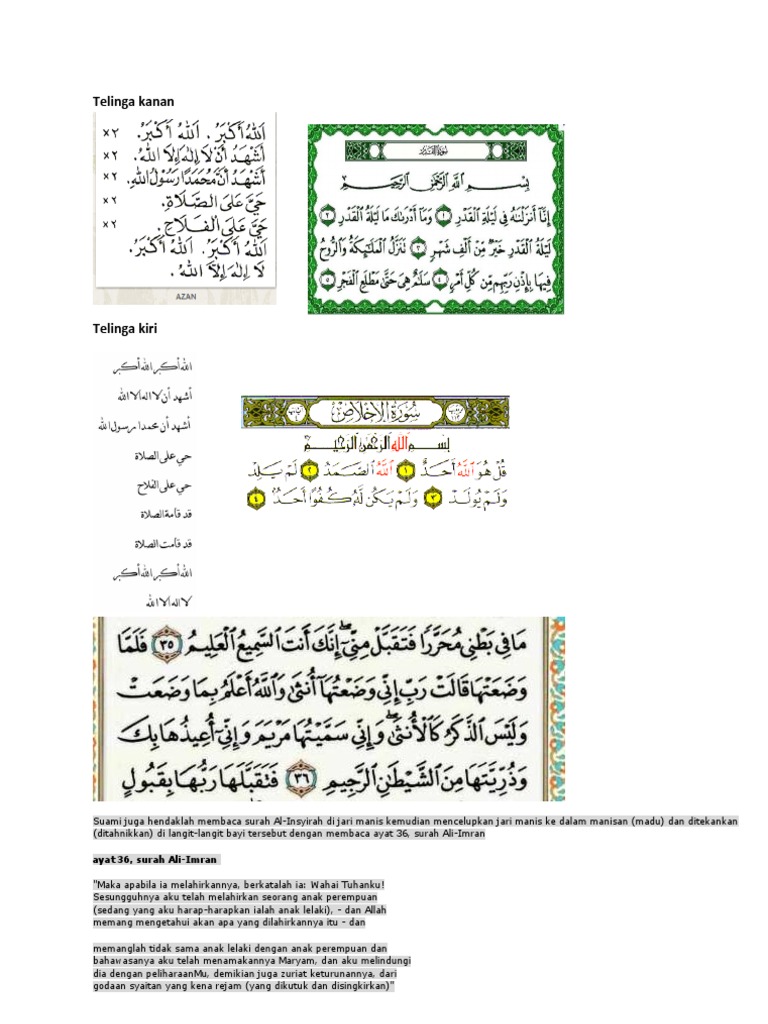 Telinga kanan
اَللهُ أَكْبَرُ . اَللهُ أَكْبَرُ. ×٢
أَشْهَدُ أَنْ لَا إِلٰهَ إِلَّا اللهُ. ×٢
أَشْهَدُ أَنَّ مُحَمَّدًا رَسُولُ اللهِ. ×٢
حَيَّ عَلَى الصَّلَاةِ. ×٢
حَيَّ عَلَى الْفَلَاحِ. ×٢
اَللهُ أَكْبَرُ . اَللهُ أَكْبَرُ.
لَا إِلٰهَ إِلَّا اللهُ .
AZAN
سورة القدر
بِسْمِ اللَّهِ الرَّحْمَٰنِ الرَّحِيمِ
إِنَّا أَنزَلْنَٰهُ فِى لَيْلَةِ الْقَدْرِ ١ وَمَا أَدْرَىٰكَ مَا لَيْلَةُ الْقَدْرِ ٢
لَيْلَةُ الْقَدْرِ خَيْرٌ مِّنْ أَلْفِ شَهْرٍ ٣ تَنَزَّلُ الْمَلَٰٓئِكَةُ وَالرُّوحُ
فِيهَا بِإِذْنِ رَبِّهِم مِّن كُلِّ أَمْرٍ ٤ سَلَٰمٌ هِىَ حَتَّىٰ مَطْلَعِ الْفَجْرِ ٥
Telinga kiri
الله أكبر الله أكبر
أشهد أن لا اله الا الله
أشهد أن محمدا رسول الله
حي على الصلاة
حي على الفلاح
قد قامة الصلاة
قد قامت الصلاة
الله أكبر الله أكبر
لا اله الا الله
سُورَةُ الإِخْلَاصِ
بِسْمِ اللَّهِ الرَّحْمَٰنِ الرَّحِيمِ
قُلْ هُوَ اللَّهُ أَحَدٌ ١ اللَّهُ الصَّمَدُ ٢ لَمْ يَلِدْ
وَلَمْ يُولَدْ ٣ وَلَمْ يَكُن لَّهُ كُفُوًا أَحَدٌ ٤
مَا فِى بَطْنِى مُحَرَّرًا فَتَقَبَّلْ مِنِّىٓ ۖ إِنَّكَ أَنتَ السَّمِيعُ الْعَلِيمُ ٣٥ فَلَمَّا
وَضَعَتْهَا قَالَتْ رَبِّ إِنِّى وَضَعْتُهَآ أُنثَىٰ وَاللَّهُ أَعْلَمُ بِمَا وَضَعَتْ
وَلَيْسَ الذَّكَرُ كَالْأُنثَىٰ ۖ وَإِنِّى سَمَّيْتُهَا مَرْيَمَ وَإِنِّىٓ أُعِيذُهَا بِكَ
وَذُرِّيَّتَهَا مِنَ الشَّيْطَٰنِ الرَّجِيمِ ٣٦ فَتَقَبَّلَهَا رَبُّهَا بِقَبُولٍ
Suami juga hendaklah membaca surah Al-Insyirah di jari manis kemudian mencelupkan jari manis ke dalam manisan (madu) dan ditekankan
(ditahnikkan) di langit-langit bayi tersebut dengan membaca ayat 36, surah Ali-Imran
ayat 36, surah Ali-Imran
"Maka apabila ia melahirkannya, berkatalah ia: Wahai Tuhanku!
Sesungguhnya aku telah melahirkan seorang anak perempuan
(sedang yang aku harap-harapkan ialah anak lelaki), - dan Allah
memang mengetahui akan apa yang dilahirkannya itu - dan
memanglah tidak sama anak lelaki dengan anak perempuan dan
bahawasanya aku telah menamakannya Maryam, dan aku melindungi
dia dengan peliharaanMu, demikian juga zuriat keturunannya, dari
godaan syaitan yang kena rejam (yang dikutuk dan disingkirkan)"